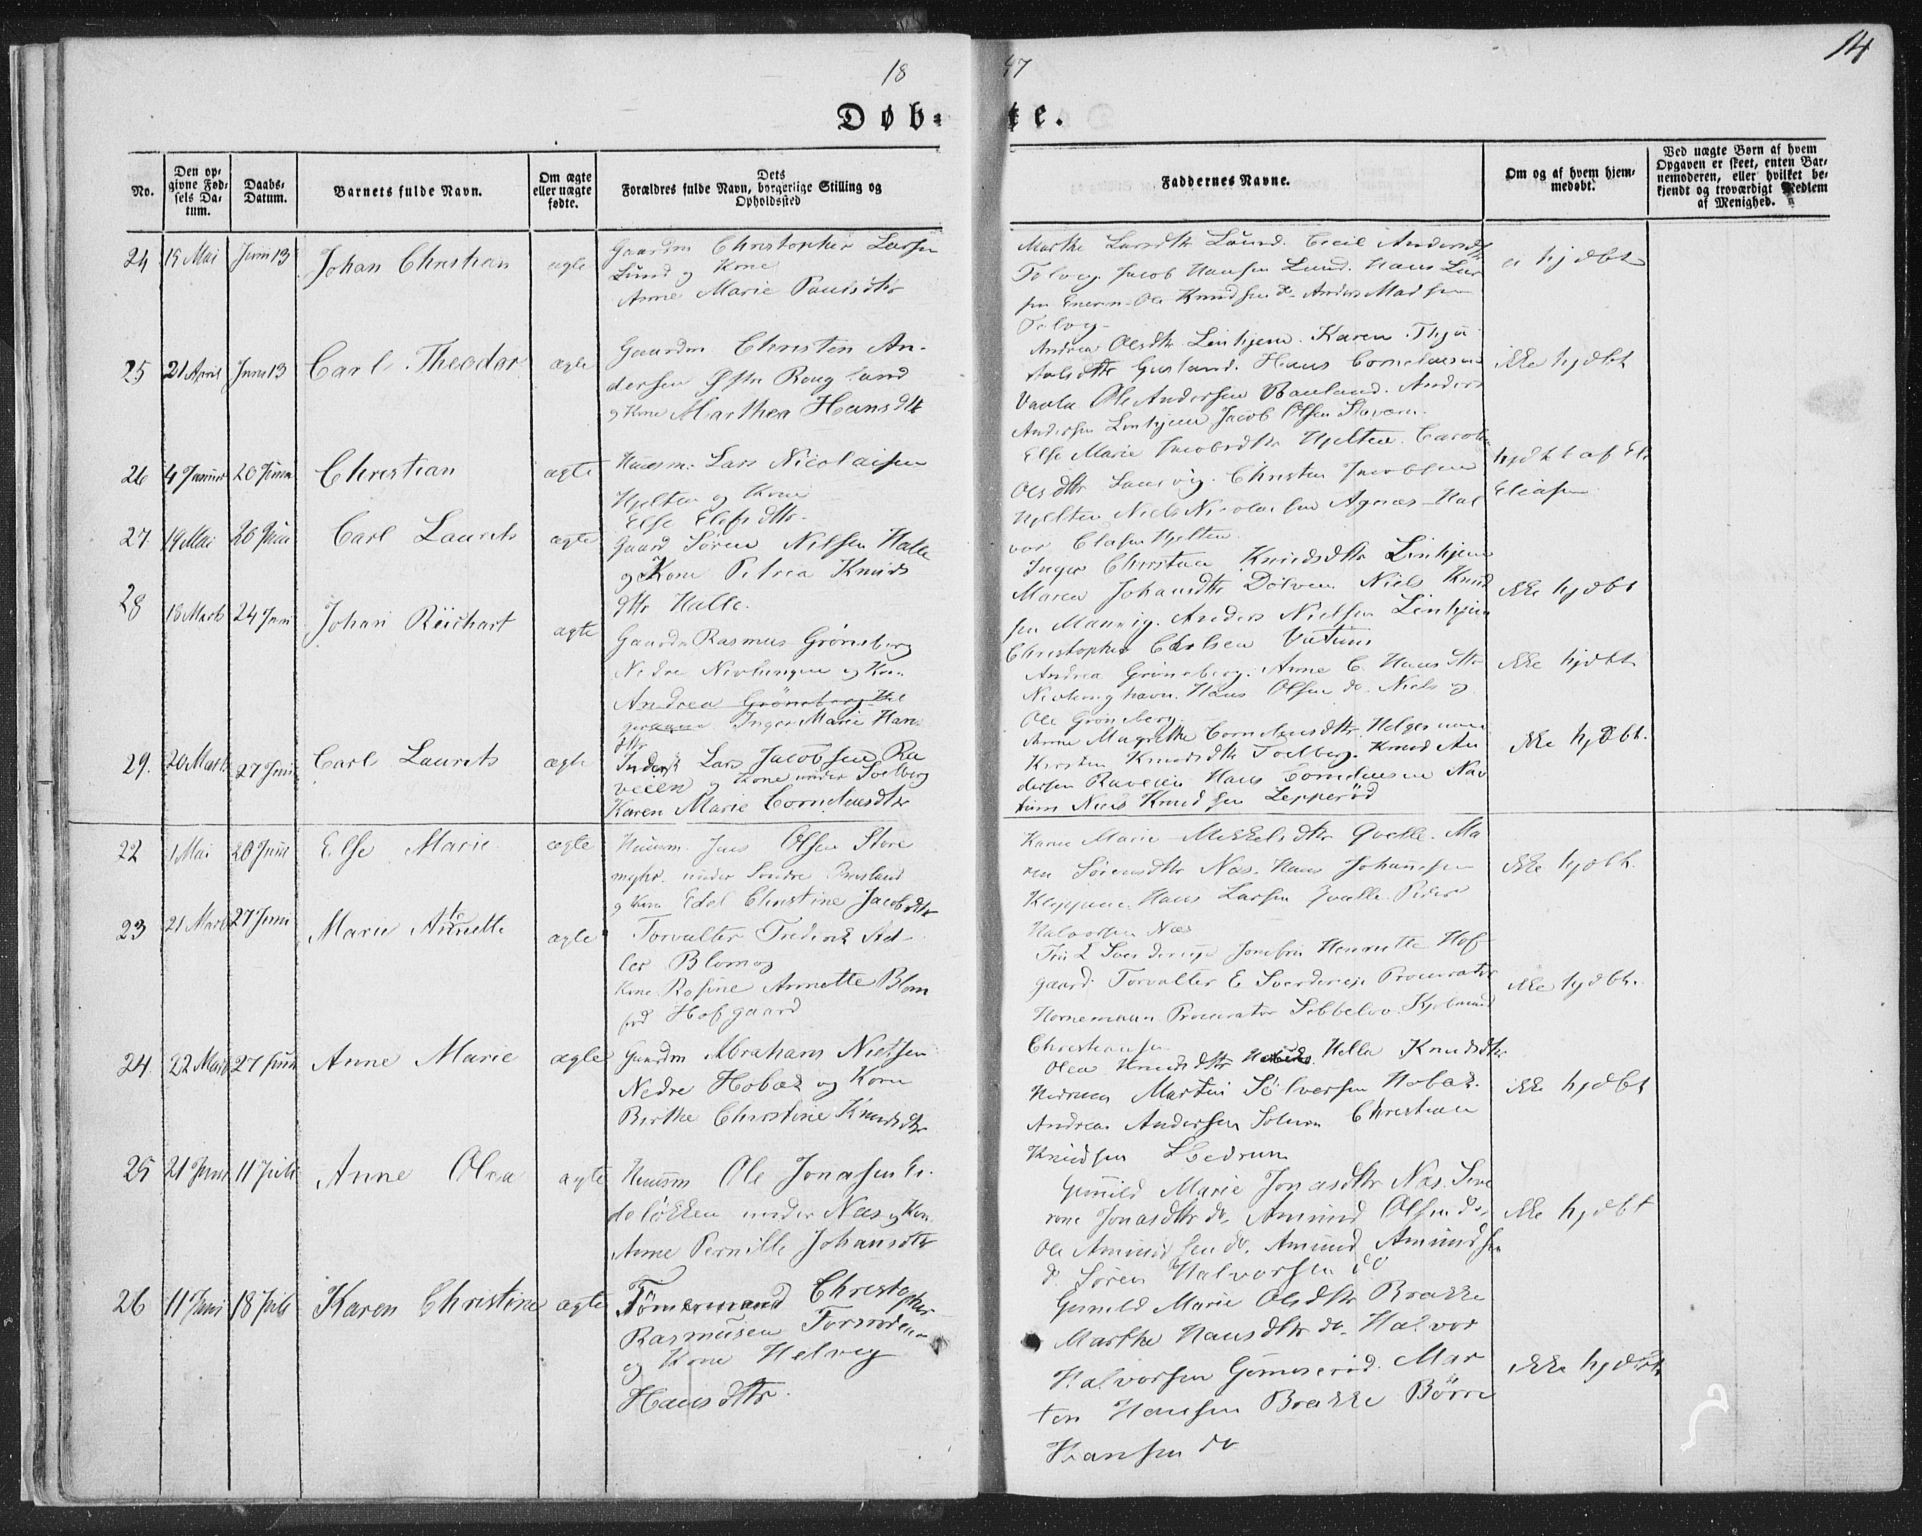 14
18 47
Døb- te.
No.
Den op-
givne Fød-
sels Da-
tum.
Daabs-
Datum.
Barnets fulde Navn.
Om ægte
eller uægte
fødte.
Dets
Forældres fulde Navn, borgerlige Stilling og
Opholdssted
Faddernes Navne.
Om og af hvem hjem-
medøbt.
Ved uægte Børn af hvem
Opgaven er skeet, enten Bar-
nemoderen, eller hvilket be-
kjendt og troværdigt Medlem
af Menighed.
24 15 Mai Juni 13 Johan Christian ægte
Gaardm Christopher Larsen
Lund og Kone
Anne Marie Paulsdtr
Marthe Larsdtr Lund. Cecil Andersdtr
Tolveg. Jacob Hansen Lund. Hans Lar
sen Ole Knudsen do Anders Madsen
Tolveg
ei hjdbt
25 21 April Juni 13 Carl Theodor ægte
Gaardm Christen An-
dersen Østre Roug land
og Kone Marthea Hansdtr
Andrea Olsdtr Linhjem. Karen
Hans Corneliusen
Ole Andersen Anders
Andersen Linhjem Jacob Olsen Stavern
ikke hjdbt
26 4 Januar 20 Juni Christian ægte
Huusm. Lars Nicolaisen
Hjelten og Kone
Else Elefsdtr
Else Marie Jacobsdtr Hjelten. Carol
Olsdtr Laurvig. Christen Jacobsen
Hjelten Niels Nicolaisen Agnæs Hal
vor Olafsen Hjelten
hjdbt af
Eliasen
27 19 Mai 26 Juni Carl Laurits ægte
Gaard Søren Nilsen Halle
og Kone Petrea Knuds
dtr Halle.
Inger Christine Knudsdtr Linhjem
Maren Johansdtr Dolven Niels Knud
sen Anders Nielsen Linhjem
Christopher Carlsen
ikke hjdbt
28 18 Marts 24 Juni Johan Reichart ægte
Gaardm Rasmus Grønsberg
Nedre Nevlungen og Kone
Andrea Grønsberg Hel
Inger Marie Han
dtr
Andrea Grønsberg. Anne C. Hansdtr
Nevlunghavn. Hans Olsen do. Niels og
Ole Grønsberg
ikke hjdbt
29. 20 Marts 27 Juni Carl Laurits ægte
Inderst Lars Jacobsen Ra
veien og Kone under Toelberg
Karen Marie Corneliusdtr
Anne Magrethe Corneliusdtr
Kirsten Knudsdtr Toelberg. Knud An
dersen Raveien Hans Corneliusen Nav
Niels Knudsen Lepperød
ikke hjdbt.
22 1 Mai 20 Juni Else Marie ægte
Huusm. Jens Olsen Store
myhr. under Søndre
og Kone Edel Christine Jacobsdtr
Karen Marie Mikkelsdtr Qvelle. Ma
ren Sørensdtr Næs. Hans Johannesen
Kleppene. Hans Larsen Qvelle. Peder
Halvorsen Næs
ikke hjdbt.
23 21 Marts 27 Juni Marie Annette ægte
Forvalter Frederik Ad-
ler Blom og
Kone Rosine Annette Blom
fød Hofgaard
Fru L Sverderup Jomfru Henriette Hof
gaard. Forvalter E Sverderup Procurator
Hornemann Procurator Kjøbmand
Christiansen
ikke hjdbt.
24. 22 Marts 27 Juni Anne Marie ægte
Gaardm Abraham Nielsen
Nedre Hobæk og Kone
Birthe Christine Knudsdtr
Olea Knudsdtr Helle Knudsdtr
Martin Sølversen Hobæk.
Andreas Andersen Christian
Knudsen
ikke hjdbt
25 21 Juni 11 Juli Anne Olea ægte
Huusm Ole Jonasen
løkken under Næs og Kone
Anne Pernille Johansdtr
Gunild Marie Jonasdtr Næs. Seve
rine Jonasdtr do. Amund Olsen do.
Ole Amundsen do. Amund Amundsen
do Søren Halvorsen do
ikke hjdbt
26 11 Juni 18 Juli Karen Christine ægte
Tømermand Christopher
Rasmusen
og Kone Helveg
Hansdtr.
Gunild Marie Olsdtr Brække
Marthe Hansdtr do. Halvor
Halvorsen Gummerød. Mar
ten Hansen Brække Børre
Hansen do
ikke hjdbt